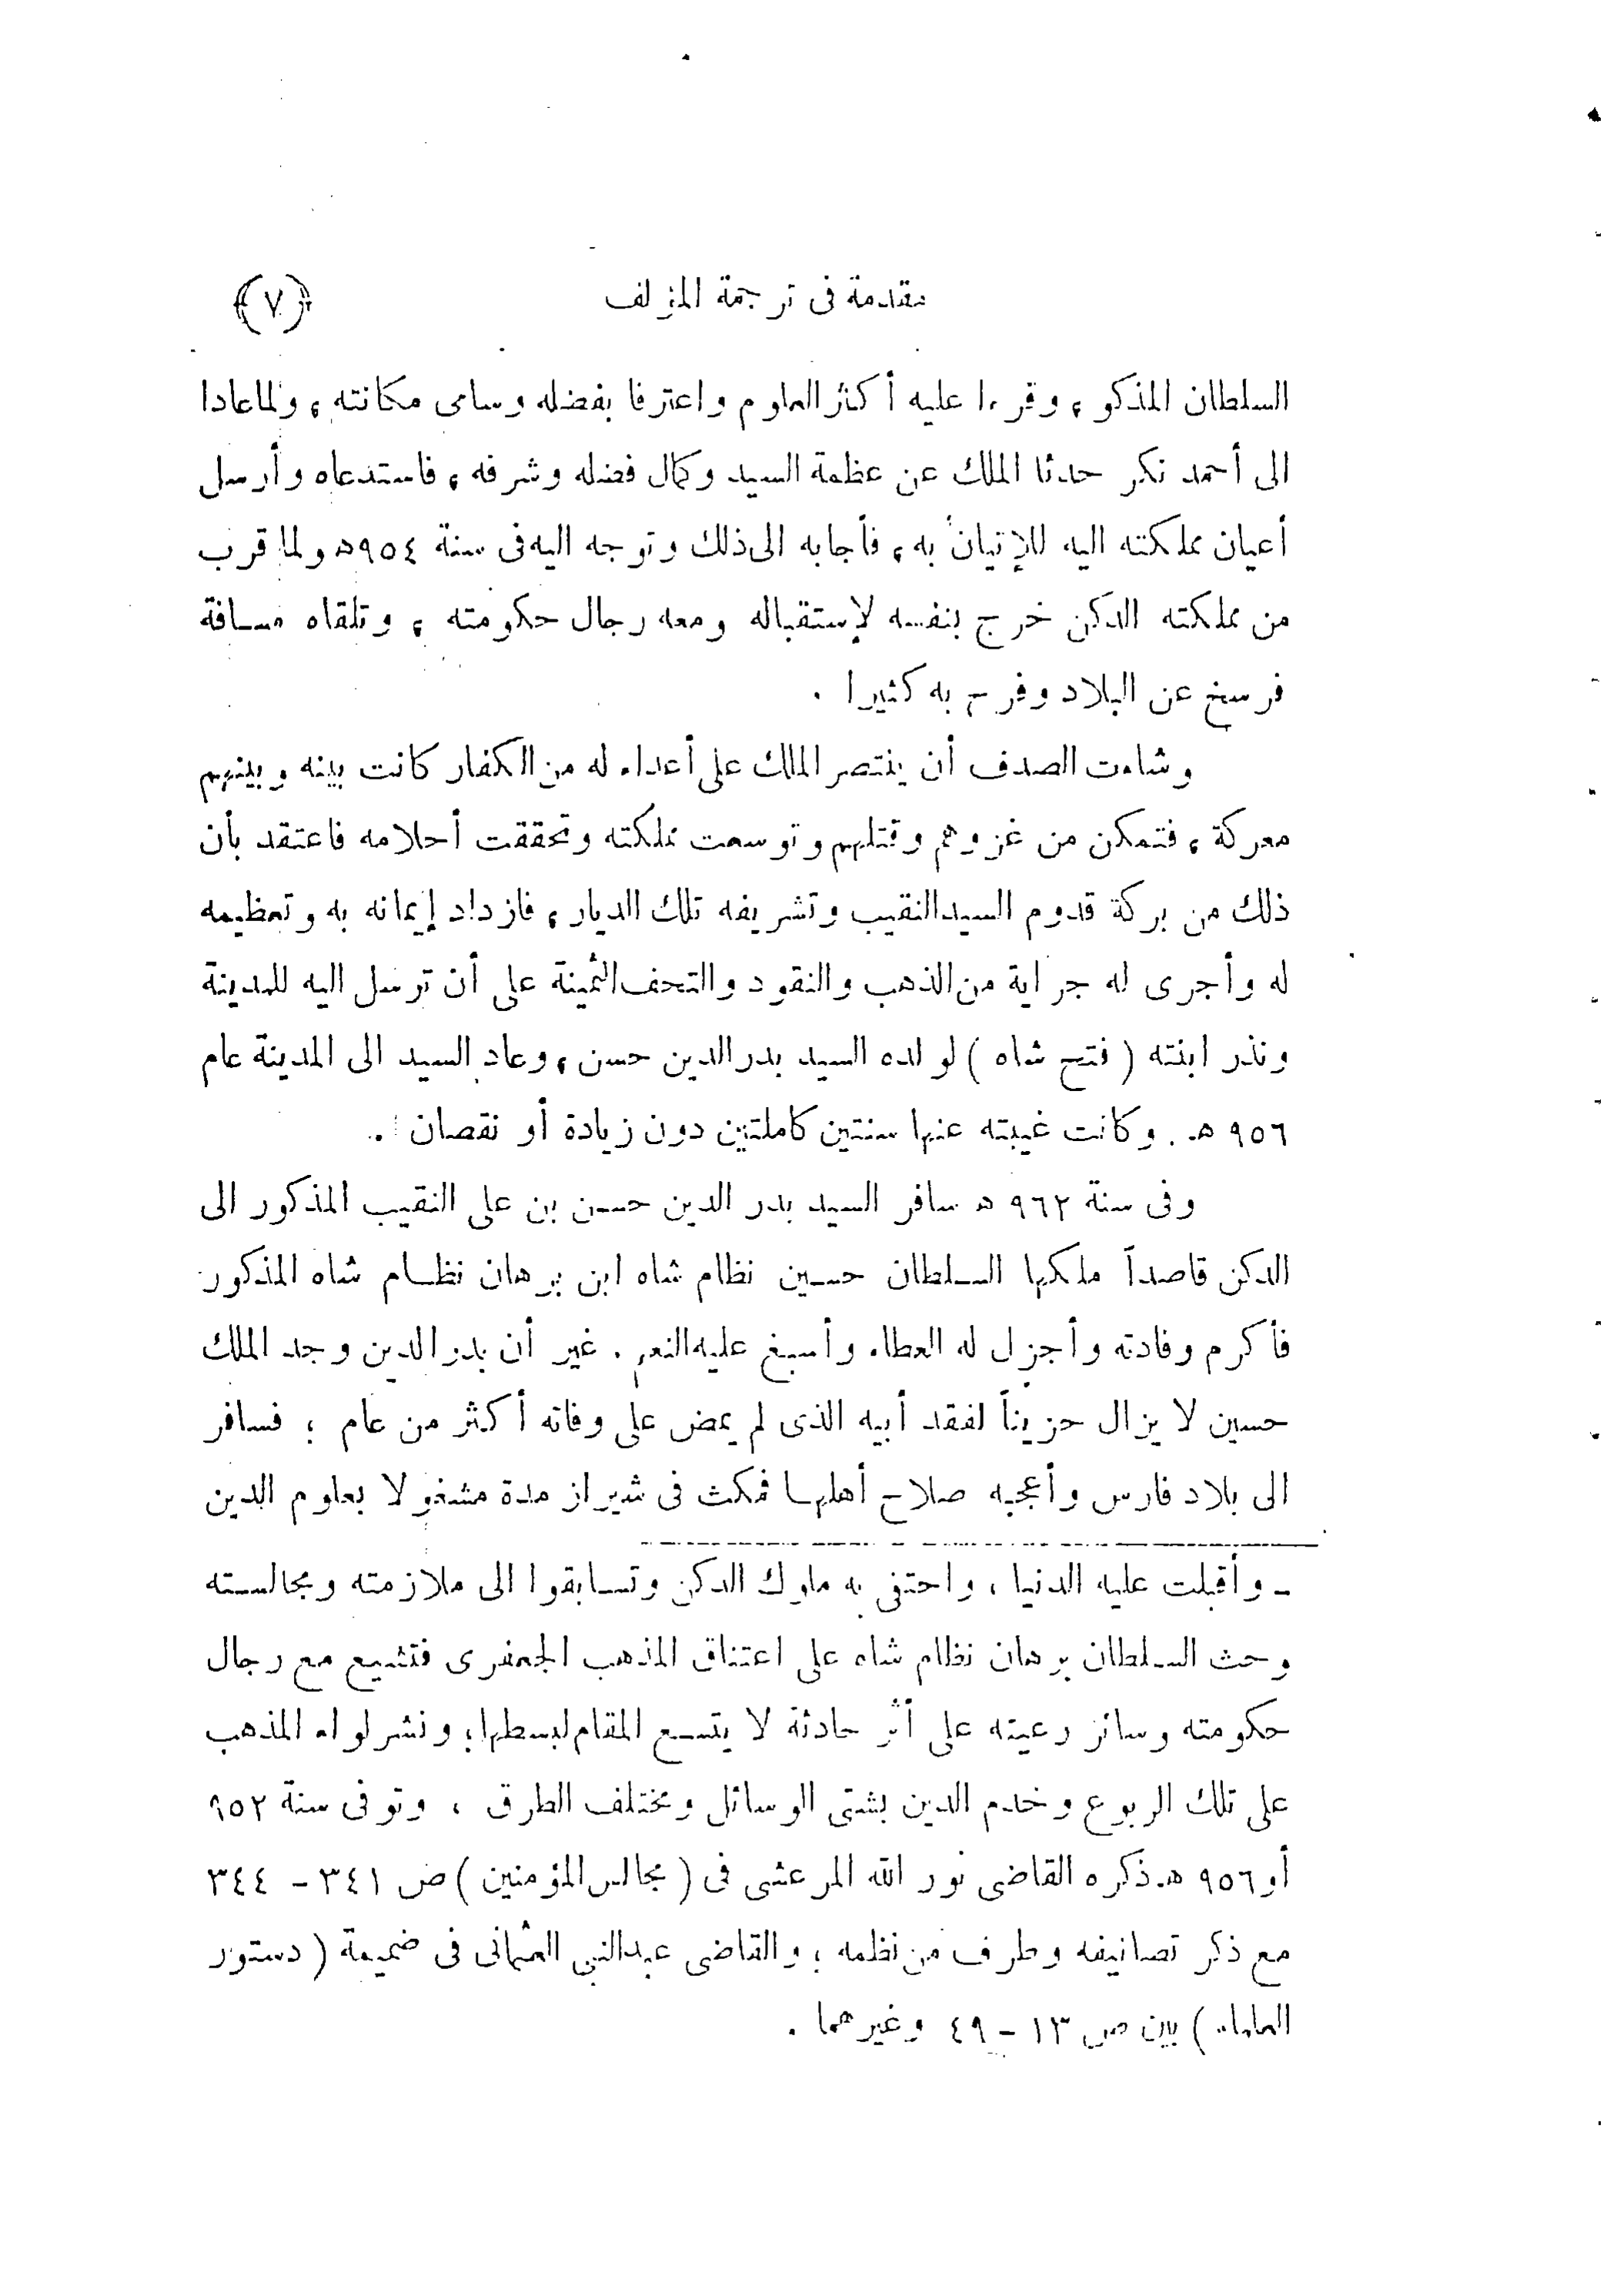 مقدمة فى ترجمة المؤلف (٧)
السلطان المذكو ، وقرءا عليه أكثر العلوم واعترفا بفضله وسامى مكانته ، ولما عادا
الى أحمد نكر حدثا الملك عن عظمة السيد وكمال فضله وشرفه ، فاستدعاه وأرسل
أعيان مملكته اليه للإتيان به ، فأجابه الى ذلك وتوجه اليه فى سنة ٩٥٤ ه ولما قرب
من مملكته الدكن خرج بنفسه لإستقباله ومعه رجال حكومته ، وتلقاه مسافة
فرسخ عن البلاد وفرح به كثيرا .
وشاءت الصدف أن ينتصر الملك على أعداء له من الكفار كانت بينه وبينهم
معركة ، فتمكن من غزوهم وقتلهم وتوسعت مملكته وتحققت أحلامه فاعتقد بأن
ذلك من بركة قدوم السيد النقيب وتشريفه تلك الديار ، فازداد إيمانه به وتعظيمه
له وأجرى له جراية من الذهب والنقود والتحف الثمينة على أن ترسل اليه للمدينة
ونذر ابنته ( فتح شاه ) لولده السيد بدر الدين حسن ، وعاد السيد الى المدينة عام
٩٥٦ ه . وكانت غيبته عنها سنتين كاملتين دون زيادة أو نقصان .
وفى سنة ٩٦٢ ه سافر السيد بدر الدين حسن بن على النقيب المذكور الى
الدكن قاصداً ملكها السلطان حسين نظام شاه ابن برهان نظام شاه المذكور
فأكرم وفادته وأجزل له العطاء وأسبغ عليه النعم . غير أن بدر الدين وجد الملك
حسين لا يزال حزيناً لفقد أبيه الذى لم يمض على وفاته أكثر من عام ؛ فسافر
الى بلاد فارس وأعجبه صلاح أهلها فمكث فى شيراز مدة مشغولا بعلوم الدين
ـ وأقبلت عليه الدنيا ، واحتفى به ملوك الدكن وتسابقوا الى ملازمته ومجالسته
وحث السلطان برهان نظام شاه على اعتناق المذهب الجعفرى فتشيع مع رجال
حكومته وسائر رعيته على أثر حادثة لا يتسع المقام لبسطها ؛ ونشر لواء المذهب
على تلك الربوع وخدم الدين بشتى الوسائل ومختلف الطرق ، وتوفى سنة ٩٥٢
أو ٩٥٦ ه . ذكره القاضى نور الله المرعشى فى ( مجالس المؤمنين ) ص ٣٤١ - ٣٤٤
مع ذكر تصانيفه وطرف من نظمه ؛ والقاضى عبد النبى العثمانى فى ضميمة ( دستور
العلماء ) بين ص ١٣ - ٤٩ وغيرهما .